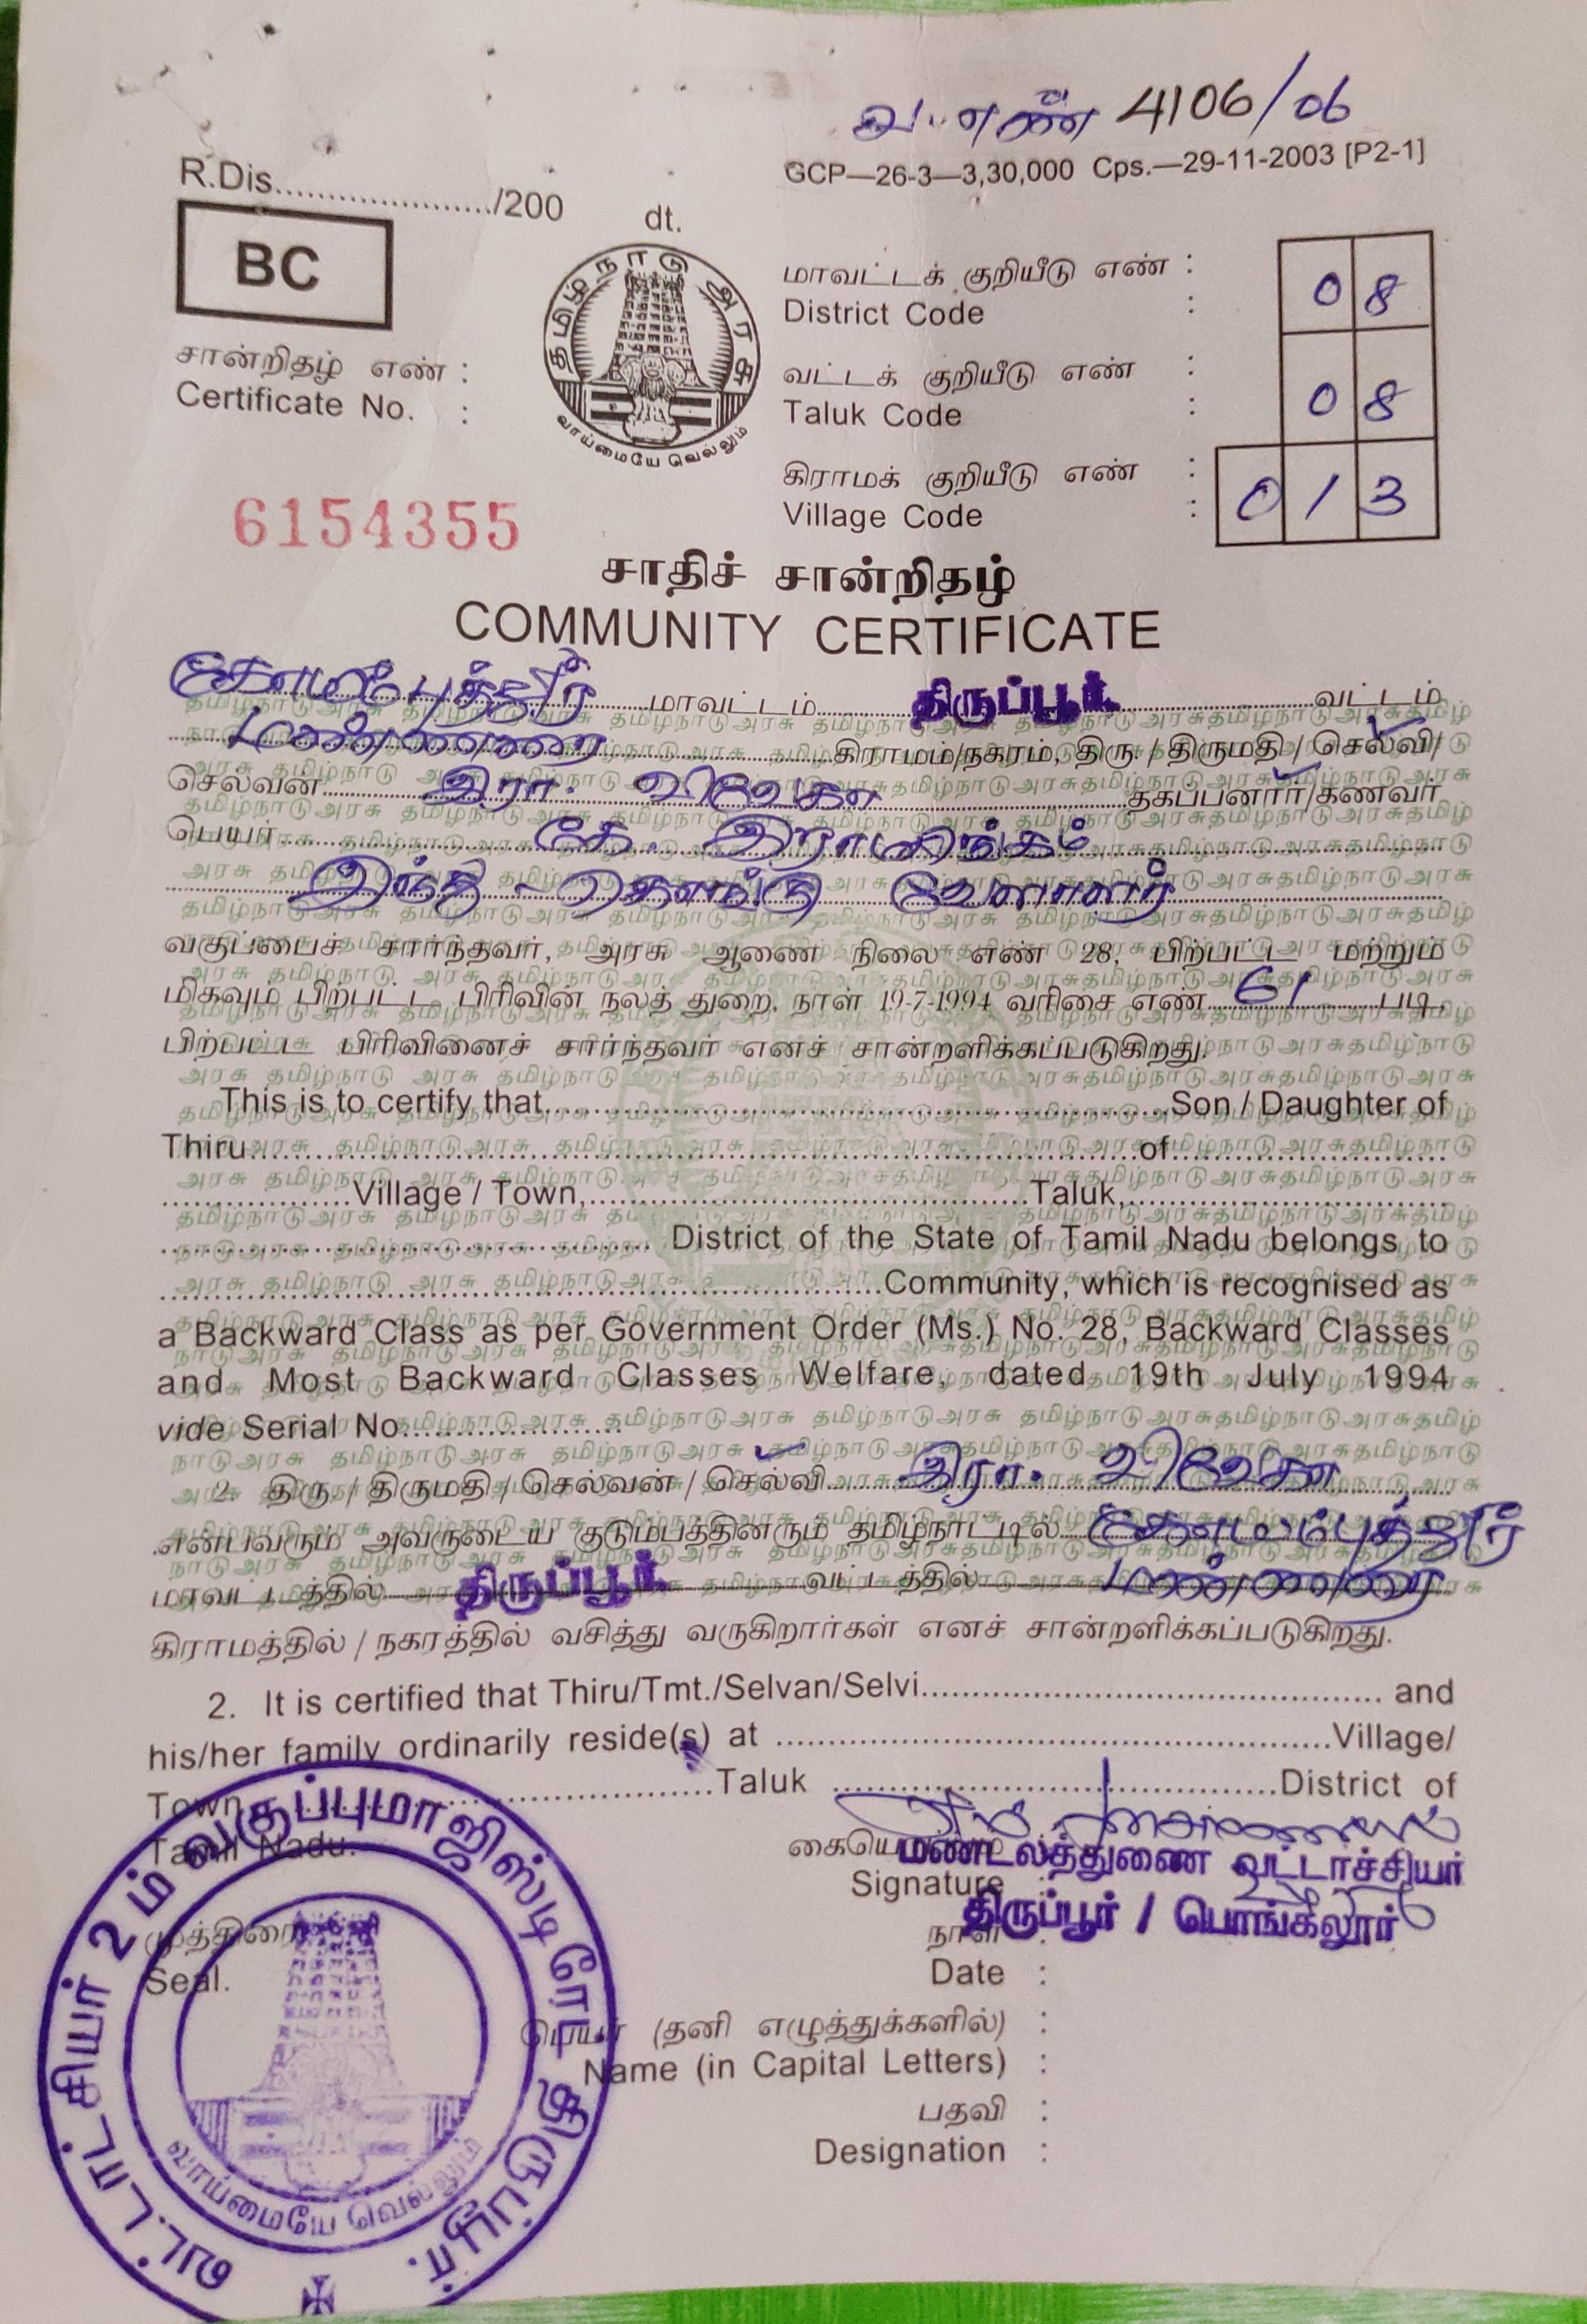 வ. எண் 4106/06
GCP—26-3—3,30,000 Cps.—29-11-2003 [P2-1]
R.Dis...................../200 dt.
BC
தமிழ்நாடு அரசு
வாய்மையே வெல்லும்
மாவட்டக் குறியீடு எண் :
District Code : 08
வட்டக் குறியீடு எண் :
Taluk Code : 08
கிராமக் குறியீடு எண் :
Village Code : 013
சான்றிதழ் எண் :
Certificate No. :
6154355
சாதிச் சான்றிதழ்
COMMUNITY CERTIFICATE
கோயமுத்தூர் மாவட்டம் திருப்பூர் வட்டம்
மண்ணரை கிராமம்/நகரம், திரு. / திருமதி / செல்வி/
செல்வன் இரா. விவேகா தகப்பனார்/கணவர்
பெயர் கே. இராமலிங்கம்
இந்து - கொங்கு வேளாளர்
வகுப்பைச் சார்ந்தவர், அரசு ஆணை நிலை எண் 28, பிற்பட்ட மற்றும்
மிகவும் பிற்பட்ட பிரிவின் நலத் துறை, நாள் 19-7-1994 வரிசை எண் 61 படி
பிற்பட்ட பிரிவினைச் சார்ந்தவர் எனச் சான்றளிக்கப்படுகிறது.
This is to certify that..........Son / Daughter of
Thiru..........of..........
..........Village / Town,..........Taluk,..........
.......... District of the State of Tamil Nadu belongs to
..........Community, which is recognised as
a Backward Class as per Government Order (Ms.) No. 28, Backward Classes
and Most Backward Classes Welfare, dated 19th July 1994
vide Serial No..........
2. திரு. / திருமதி / செல்வன் / செல்வி இரா. விவேகா
என்பவரும் அவருடைய குடும்பத்தினரும் தமிழ்நாட்டில் கோயமுத்தூர்
மாவட்டத்தில் திருப்பூர் வட்டத்தில் மண்ணரை
கிராமத்தில் / நகரத்தில் வசித்து வருகிறார்கள் எனச் சான்றளிக்கப்படுகிறது.
2. It is certified that Thiru/Tmt./Selvan/Selvi.......... and
his/her family ordinarily reside(s) at ..........Village/
Town ..........Taluk ..........District of
Tamil Nadu.
கையொப்பம்
Signature :
மண்டலத்துணை வட்டாச்சியர்
திருப்பூர் / பொங்கலூர்
முத்திரை
Seal.
நாள் :
Date :
பெயர் (தனி எழுத்துக்களில்) :
Name (in Capital Letters) :
பதவி :
Designation :
வட்டாட்சியர் 2 ம் வகுப்புமாஜிஸ்டிரேட் திருப்பூர்.
வாய்மையே வெல்லும்